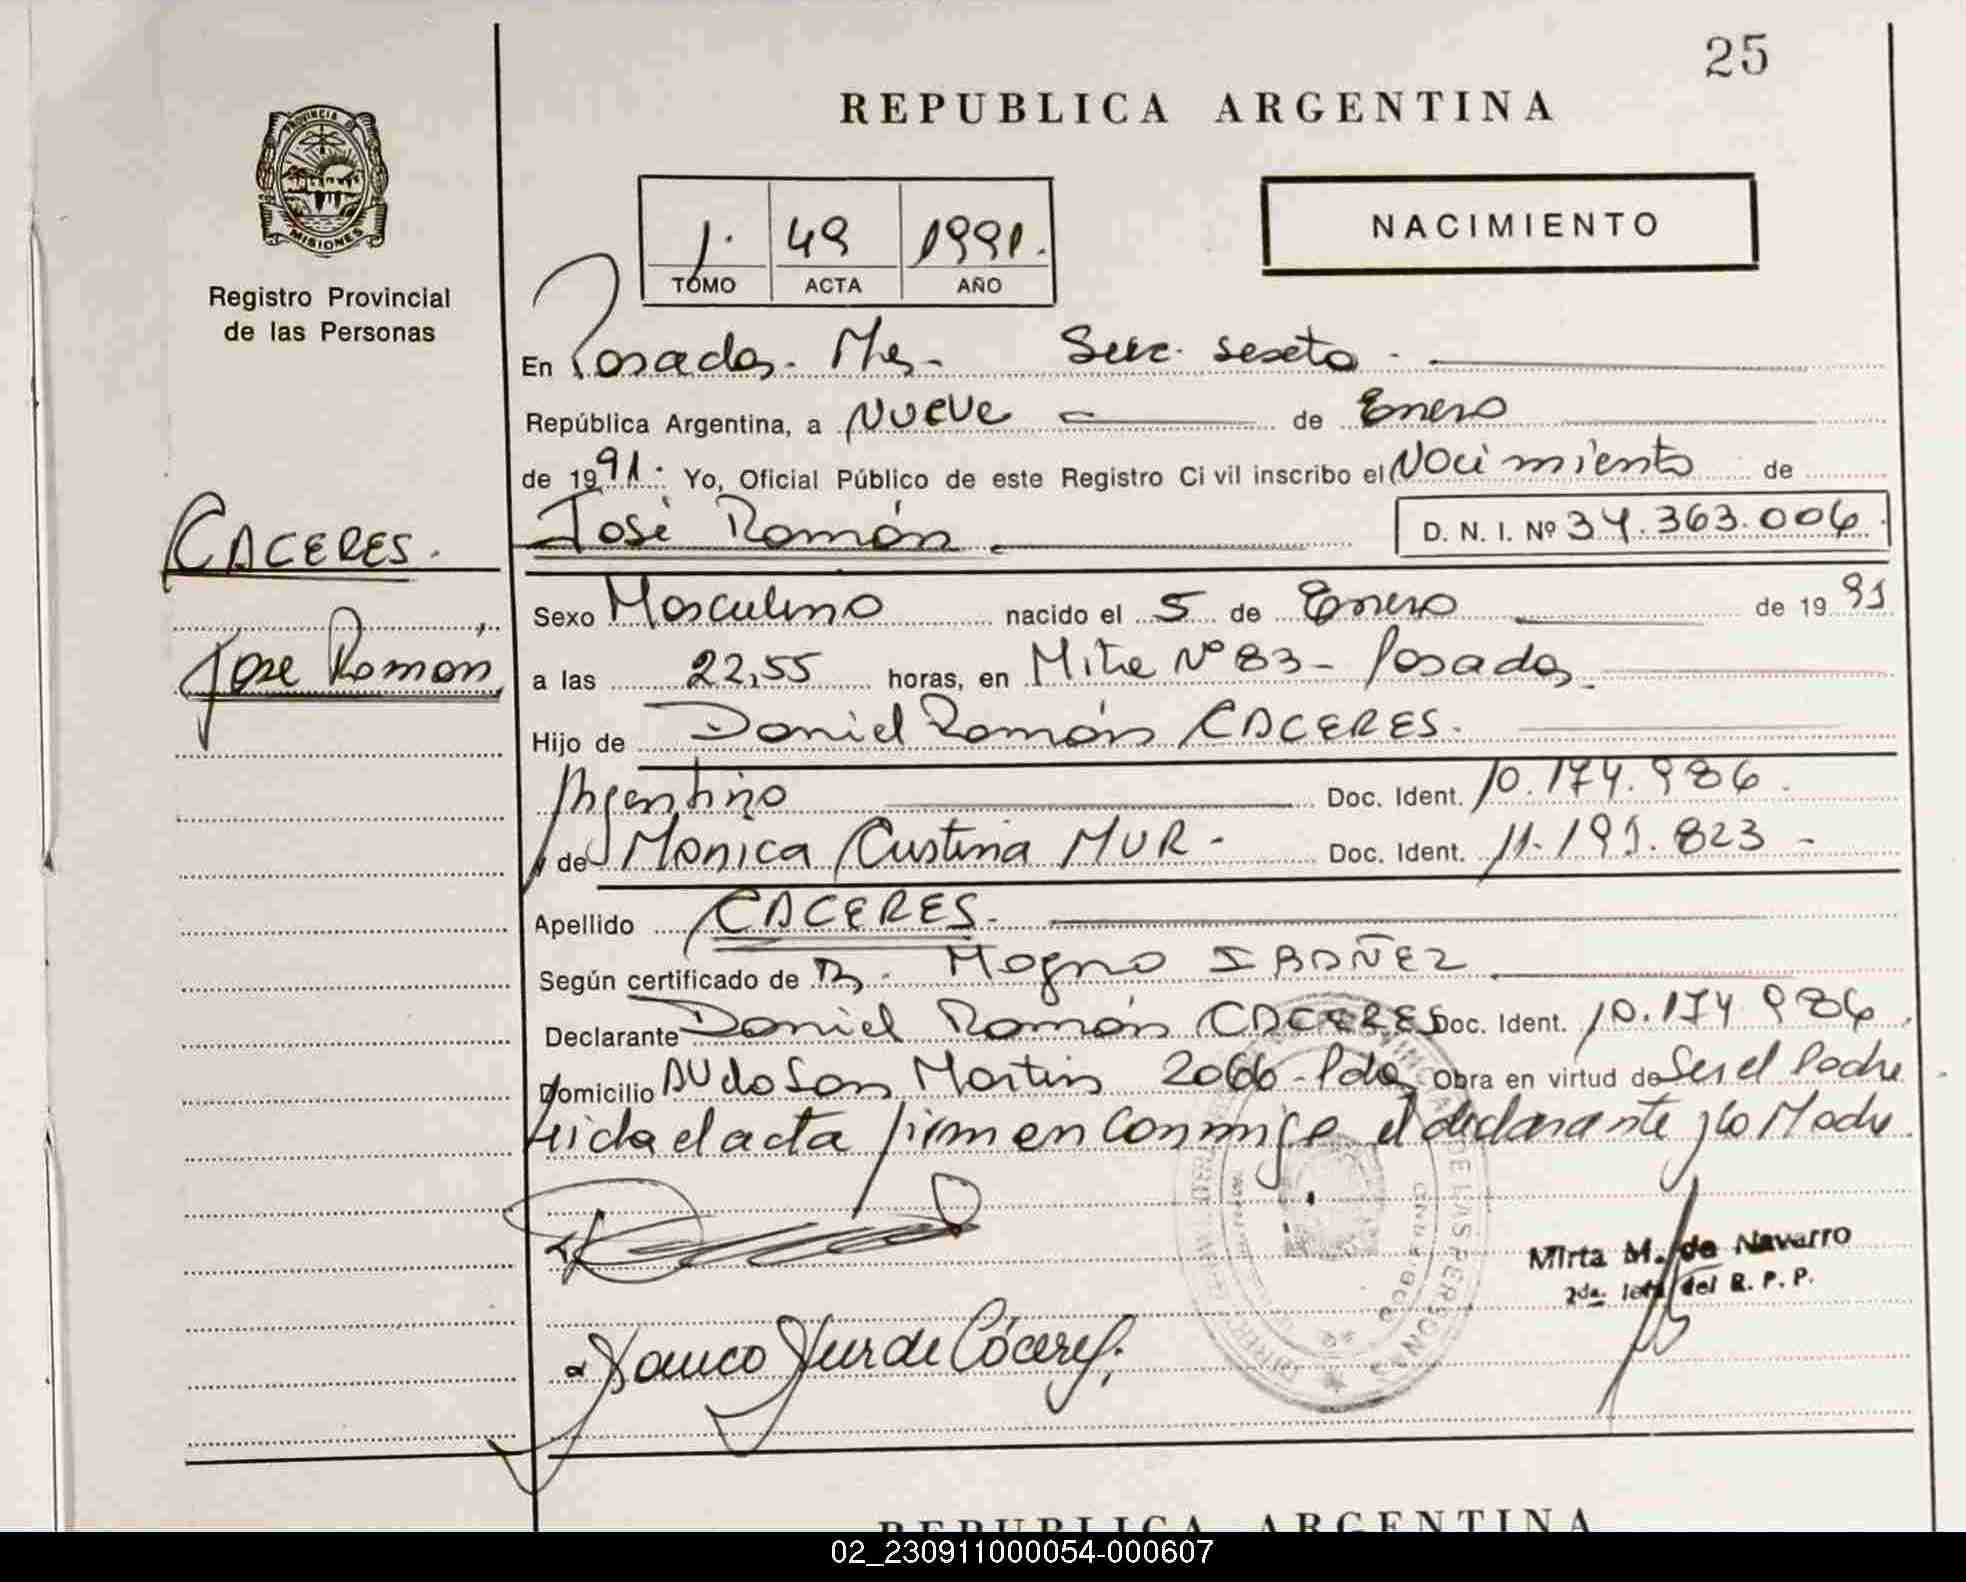 25
REPUBLICA ARGENTINA
PROVINCIA DE
MISIONES
Registro Provincial
de las Personas
NACIMIENTO
1. 49 1991.
TOMO ACTA AÑO
En Posadas. Ms. Secc. sexta.
República Argentina, a Nueve de Enero
de 1991. Yo, Oficial Público de este Registro Civil inscribo el Nacimiento de
CACERES.
José Ramón
D. N. I. Nº 34.363.006.
Sexo Masculino nacido el 5 de Enero de 1991
Jose Ramon
a las 22,55 horas, en Mitre Nº 83 - Posadas.
Hijo de Daniel Ramón CACERES.
Argentino Doc. Ident. 10.174.986.
y de Monica Cristina MUR - Doc. Ident. 11.191.823 -
Apellido CACERES.
Según certificado de Magno IBAÑEZ
Declarante Daniel Ramón CACERES Doc. Ident. 10.174.986.
Domicilio Avda San Martin 2066 - Pdas Obra en virtud de Ser el Padre
Leida el acta firman conmigo el declarante y la Madre.
DE LAS PERSONAS
Mirta M. de Navarro
2da. Jefa del R. P. P.
Mur de Cáceres.
REPUBLICA ARGENTINA
02_230911000054-000607